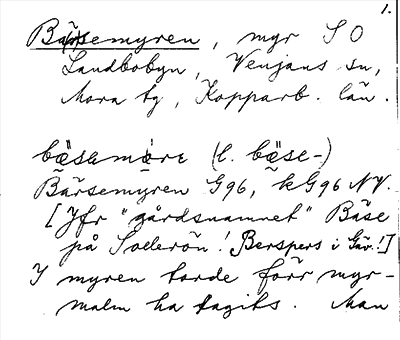 1.
Bärsemyren, myr S O
Landbobyn, Venjans sn,
Mora tg, Kopparb. län.
bäsamöre (l. bäse-)
Bärsemyren G96, kG96 NV.
[Jfr "gårdsnamnet" Bäse
på Sollerön! Berspers i Gäv.!]
I myren torde förr myr-
malm ha tagits. Man